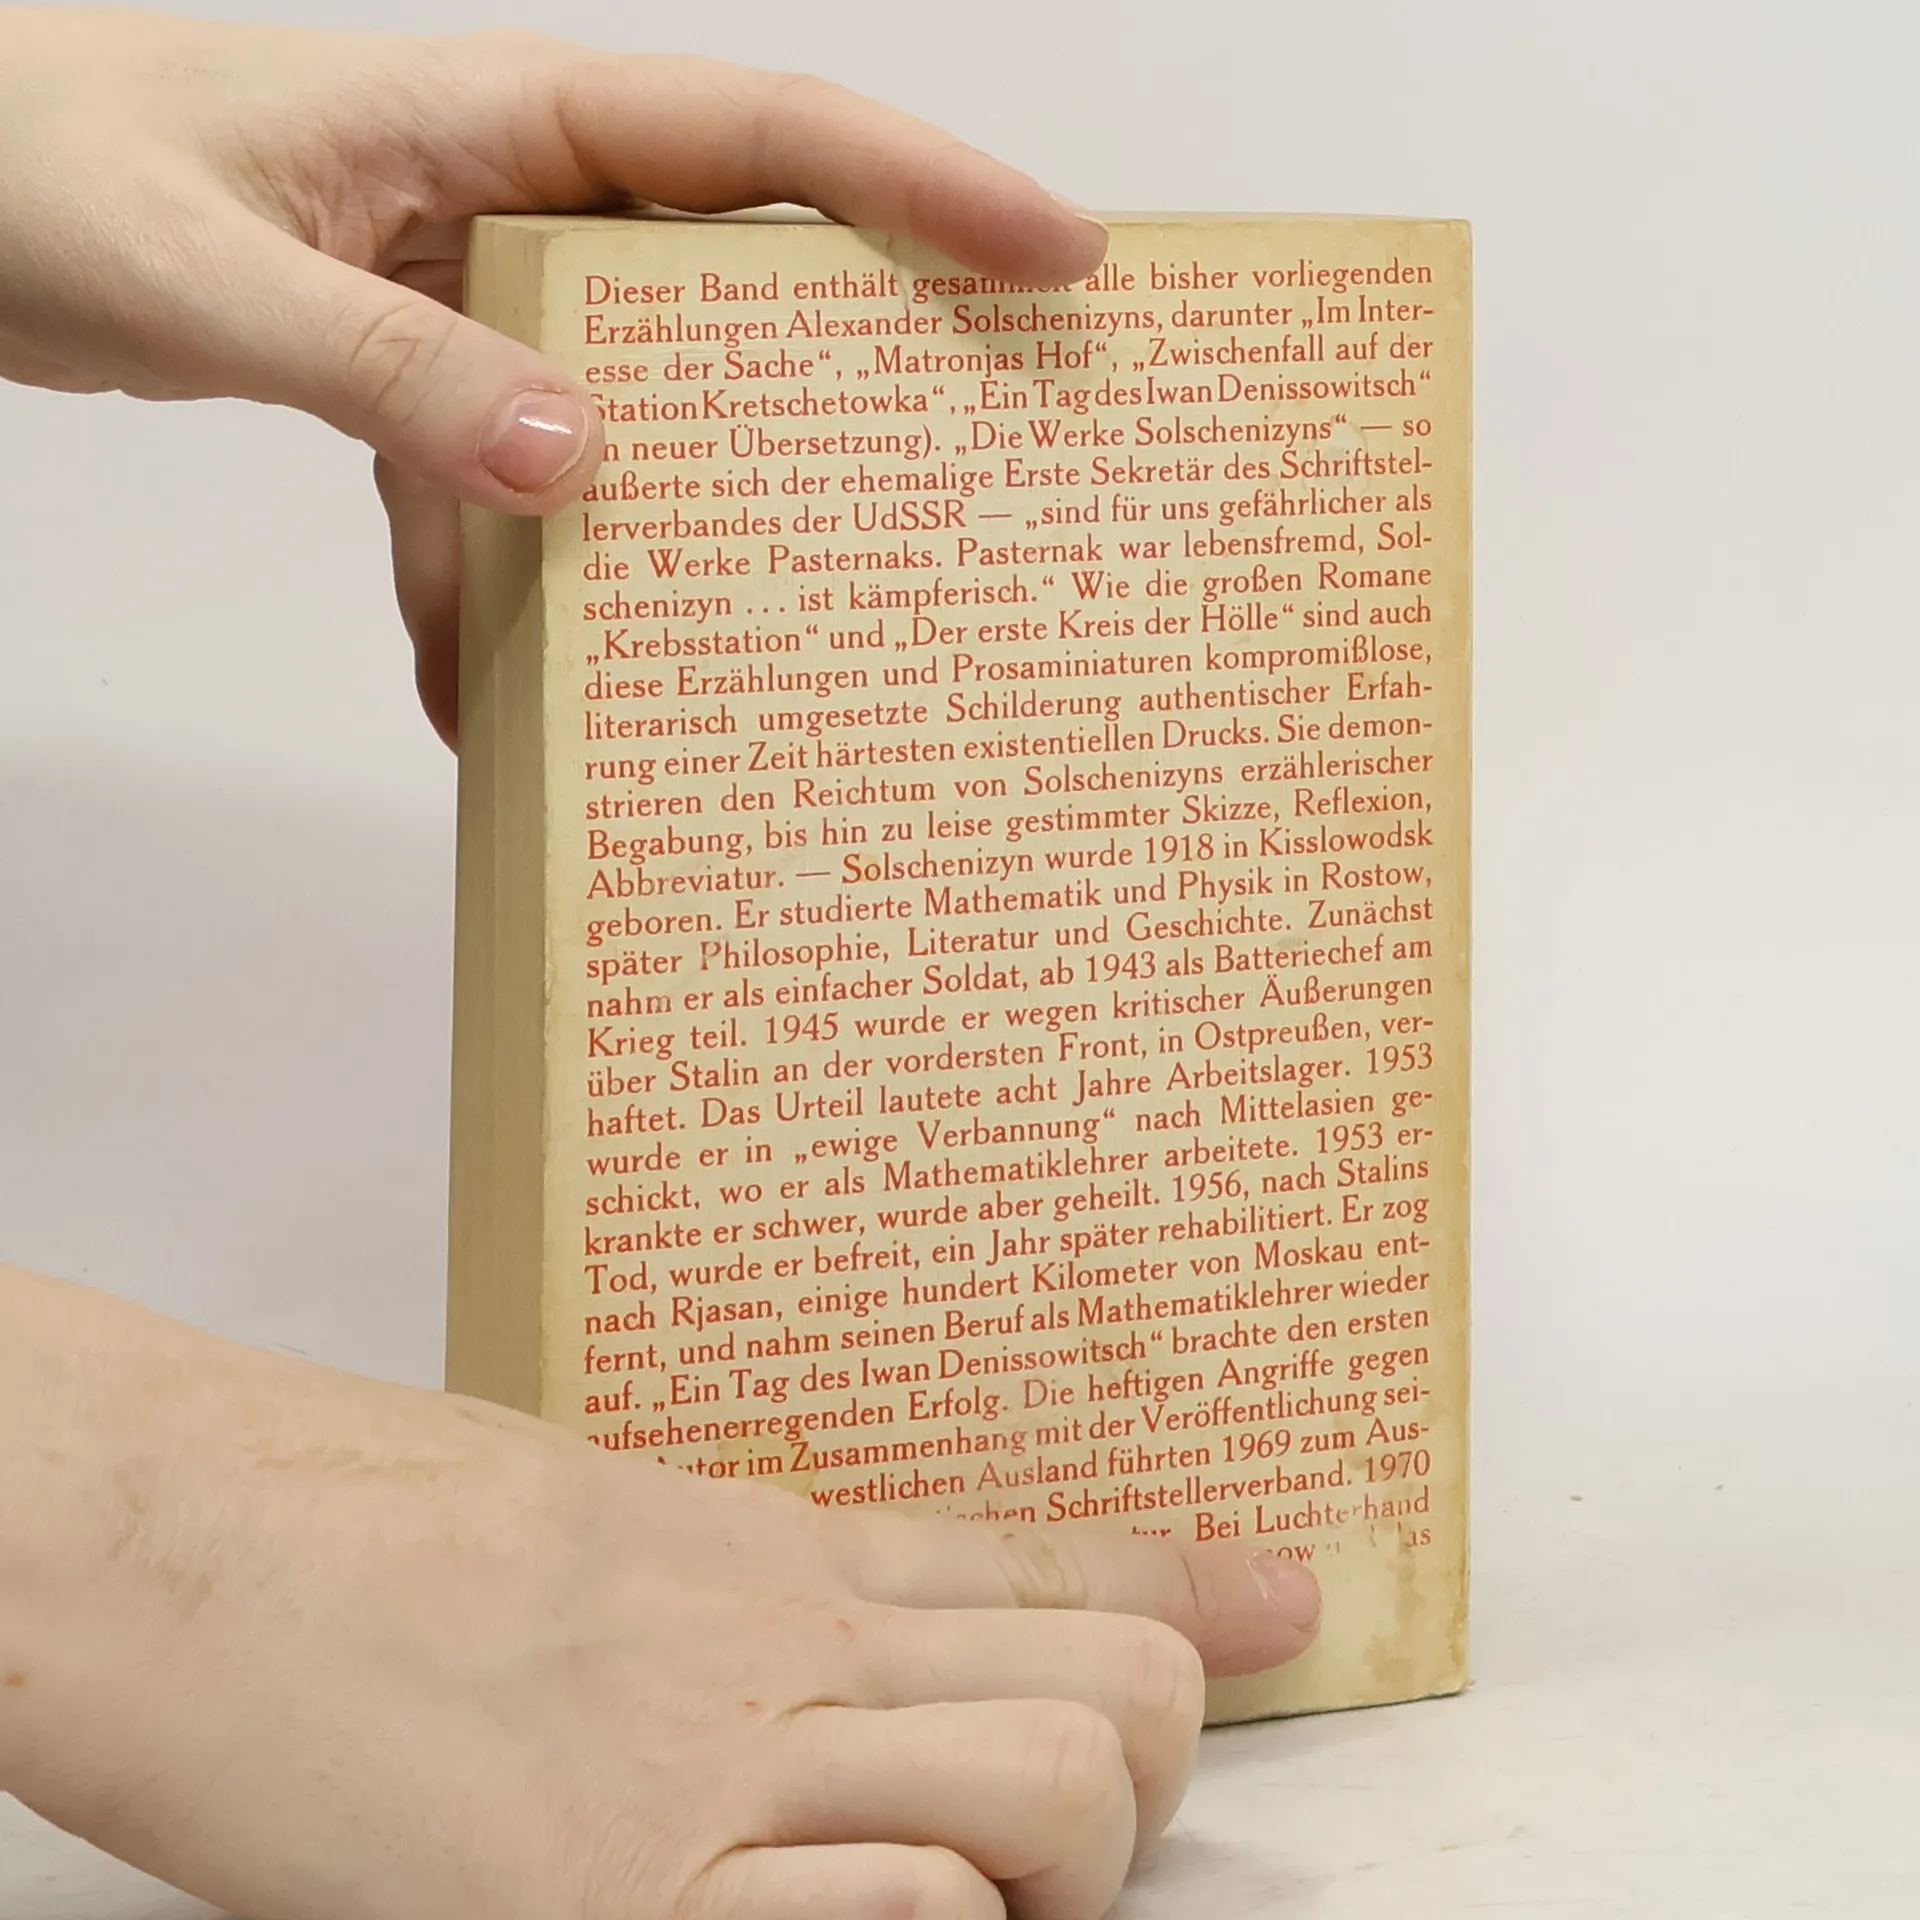 Dieser Band enthält alle bisher vorliegenden
Erzählungen Alexander Solschenizyns, darunter „Im Inter-
esse der Sache“, „Matronjas Hof“, „Zwischenfall auf der
Station Kretschetowka“, „Ein Tag des Iwan Denissowitsch“
neuer Übersetzung). „Die Werke Solschenizyns“ — so
äußerte sich der ehemalige Erste Sekretär des Schriftstel-
lerverbandes der UdSSR — „sind für uns gefährlicher als
die Werke Pasternaks. Pasternak war lebensfremd, Sol-
schenizyn ... ist kämpferisch.“ Wie die großen Romane
„Krebsstation“ und „Der erste Kreis der Hölle“ sind auch
diese Erzählungen und Prosaminiaturen kompromißlose,
literarisch umgesetzte Schilderung authentischer Erfah-
rung einer Zeit härtesten existentiellen Drucks. Sie demon-
strieren den Reichtum von Solschenizyns erzählerischer
Begabung, bis hin zu leise gestimmter Skizze, Reflexion,
Abbreviatur. — Solschenizyn wurde 1918 in Kisslowodsk
geboren. Er studierte Mathematik und Physik in Rostow,
später Philosophie, Literatur und Geschichte. Zunächst
nahm er als einfacher Soldat, ab 1943 als Batteriechef am
Krieg teil. 1945 wurde er wegen kritischer Äußerungen
über Stalin an der vordersten Front, in Ostpreußen, ver-
haftet. Das Urteil lautete acht Jahre Arbeitslager. 1953
wurde er in „ewige Verbannung“ nach Mittelasien ge-
schickt, wo er als Mathematiklehrer arbeitete. 1953 er-
krankte er schwer, wurde aber geheilt. 1956, nach Stalins
Tod, wurde er befreit, ein Jahr später rehabilitiert. Er zog
nach Rjasan, einige hundert Kilometer von Moskau ent-
fernt, und nahm seinen Beruf als Mathematiklehrer wieder
auf. „Ein Tag des Iwan Denissowitsch“ brachte den ersten
aufsehenerregenden Erfolg. Die heftigen Angriffe gegen
im Zusammenhang mit der Veröffentlichung sei-
westlichen Ausland führten 1969 zum Aus-
Schriftstellerverband. 1970
Bei Luchterhand